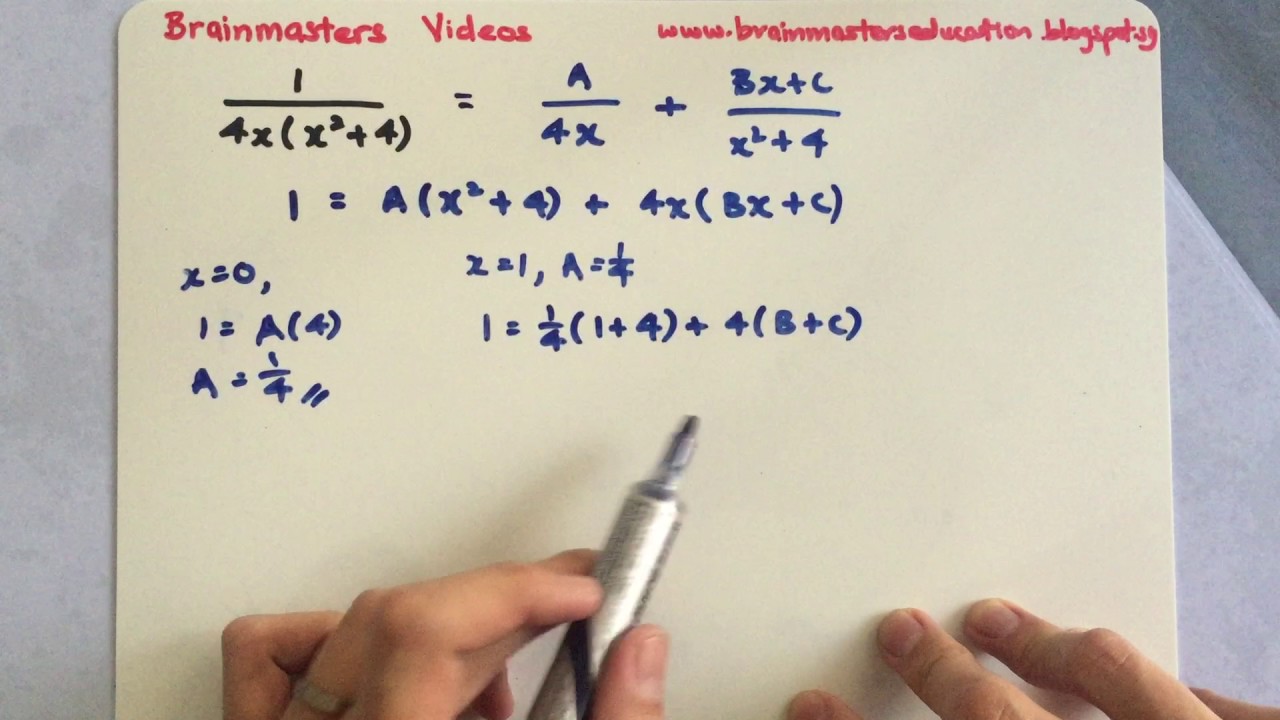 Brainmasters Videos www.brainmasterseducation.blogspot.sg
1/(4x(x²+4)) = A/(4x) + (Bx+C)/(x²+4)
1 = A(x²+4) + 4x(Bx+C)
x=0,
1 = A(4)
A = 1/4 //
x=1, A=1/4
1 = 1/4(1+4) + 4(B+C)